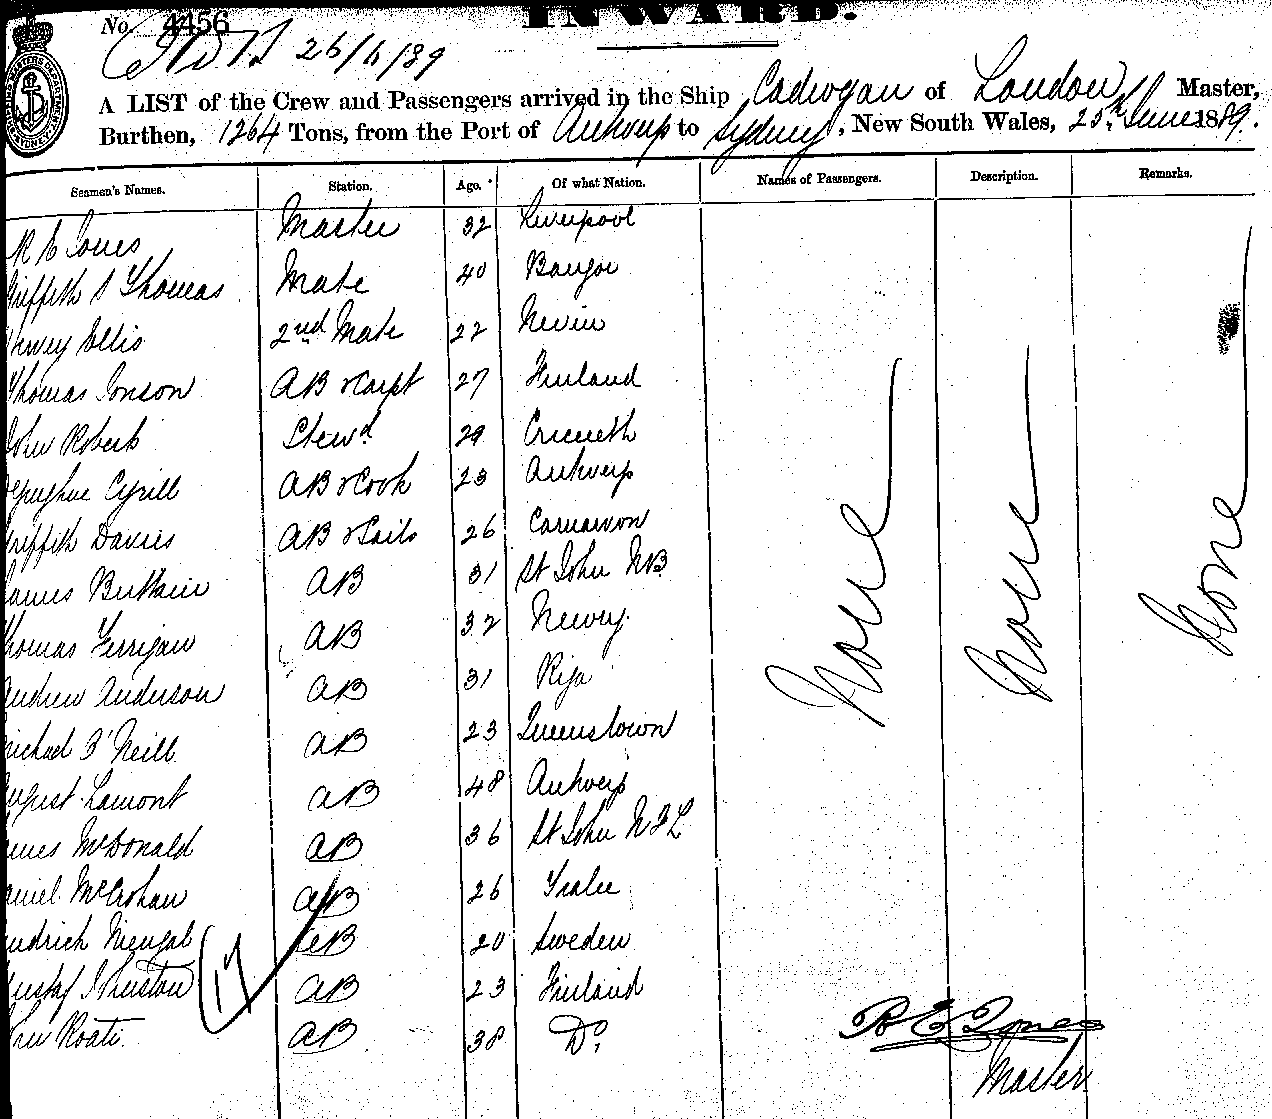 INWARD.
No. 4456
26/6/89
A LIST of the Crew and Passengers arrived in the Ship Cadwgan of London, Master,
Burthen, 1264 Tons, from the Port of Antwerp to Sydney, New South Wales, 25th June 1889.
Seamen's Names. Station. Age. Of what Nation. Names of Passengers. Description. Remarks.
R E Jones Master 32 Liverpool
riffith S Thomas Mate 40 Bangor
Ellis 2nd Mate 22 Nevin
Thomas Jonson AB & Carpt 27 Finland
John Roberts Stewd 29 Criccieth
Cyrill AB & Cook 23 Antwerp
riffith Davies AB & Sails 26 Carnarvon
ames Brittain AB 31 St John NB
homas Ferrigan AB 32 Newry
Andrew Anderson AB 31 Riga
ichael O'Neill AB 23 Queenstown
ugust Lamont AB 48 Antwerp
ames McDonald AB 36 St John NFL
aniel McCrohan AB 26 Tralee
endrich AB 20 Sweden
ustaf AB 23 Finland
ohn AB 38 Do
None None None
17
R E Jones
Master